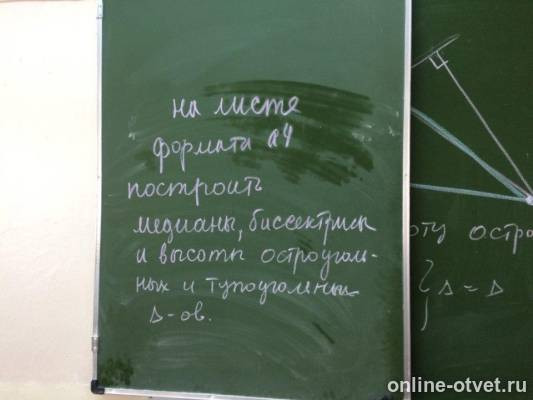 на листе
формата а4
построить
медианы, биссектрисы
и высоты остроуголь-
ных и тупоугольных
Δ-ов.
оту остро
Δ = Δ
online-otvet.ru